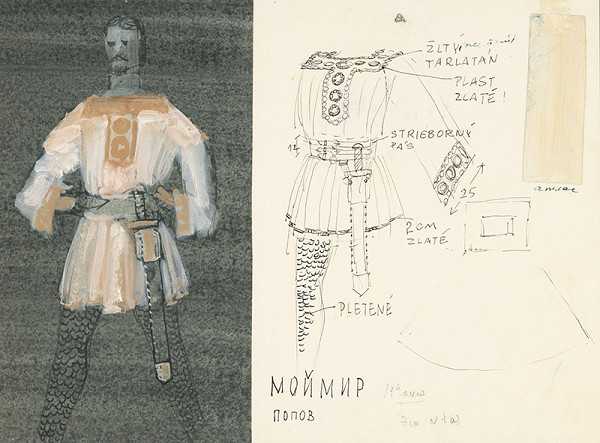 ŽLTÝ
TARLATÁN
PLAST
ZLATÉ!
STRIEBORNÝ
PÁS
12
25
atlas
ROM
ZLATÉ
PLETENÉ
МОЙМИР
ПОПОВ